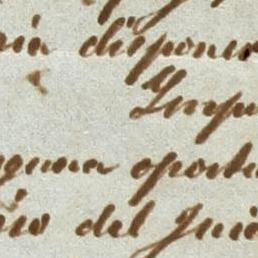 ria disponer
Impu
guna oportu
rio del Jui